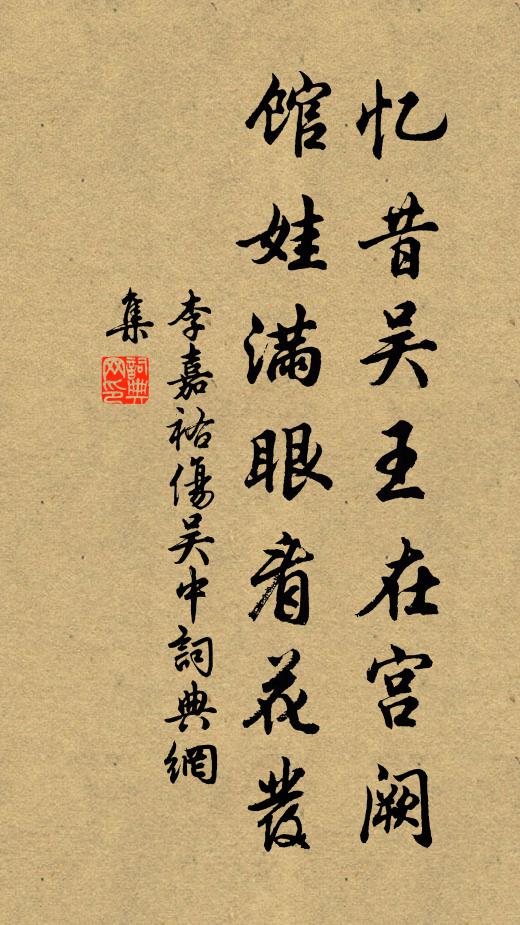 忆昔吴王在宫阙
馆娃满眼看花發
李嘉祐傷吴中詞典網
集
詞典
网印